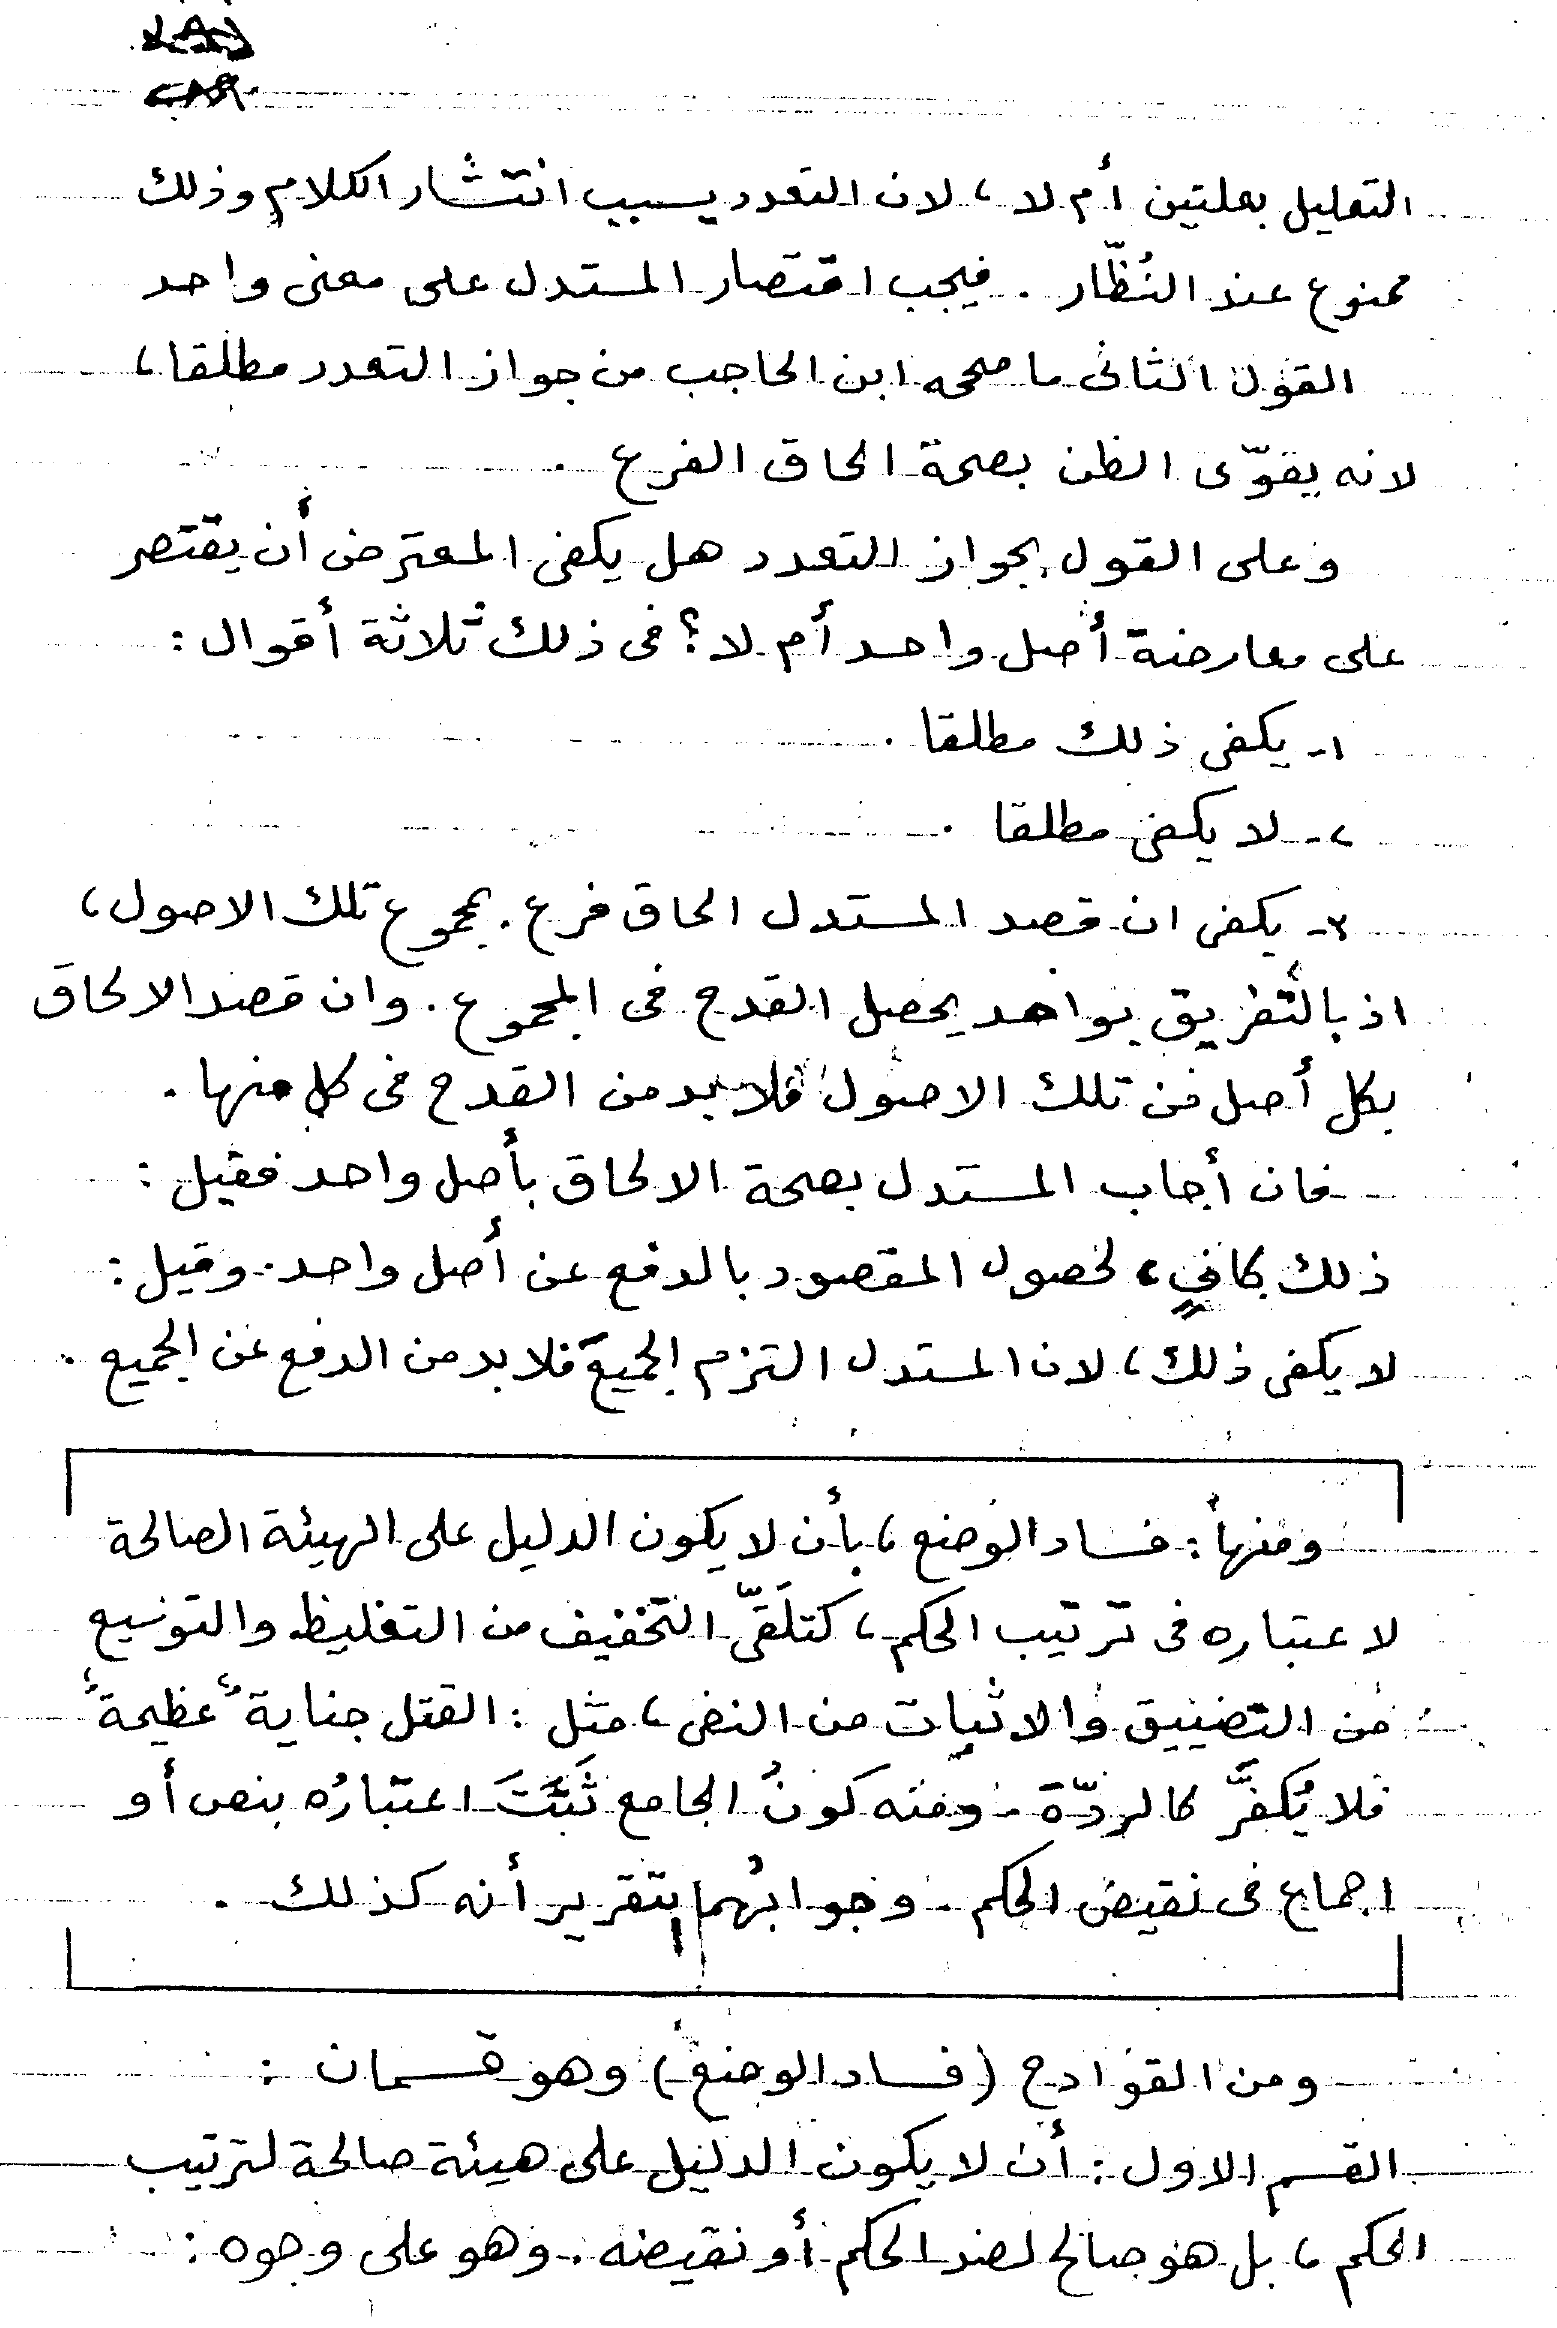 التعليل بعلتين أم لا، لان التعدد يسبب انتشار الكلام وذلك
ممنوع عند النُظّار. فيجب اقتصار المستدل على معنى واحد
القول الثانى ما صححه ابن الحاجب من جواز التعدد مطلقا،
لانه يقوّى الظن بصحة الحاق الفرع.
وعلى القول بجواز التعدد هل يكفى المعترض أن يقتصر
على معارضة أصل واحد أم لا؟ فى ذلك ثلاثة أقوال:
١- يكفى ذلك مطلقا.
٢- لا يكفى مطلقا.
٣- يكفى ان قصد المستدل الحاق فرع بمجموع تلك الاصول،
اذ بالتفريق بواحد يحصل القدح فى المجموع. وان قصد الالحاق
بكل أصل من تلك الاصول فلا بد من القدح فى كل منها.
فان أجاب المستدل بصحة الالحاق بأصل واحد فقيل:
ذلك كافٍ، لحصول المقصود بالدفع عن أصل واحد. وقيل:
لا يكفى ذلك، لان المستدل التزم الجميع فلا بد من الدفع عن الجميع.
ومنها: فساد الوضع، بأن لا يكون الدليل على الهيئة الصالحة
لاعتباره فى ترتيب الحكم، كتلَقّى التخفيف من التغليظ والتوسيع
من التضييق والاثبات من النفى، مثل: القتل جناية عظيمة
فلا يُكفَّر كالردّة. ومنه كونُ الجامع ثَبَتَ اعتبارُه بنص أو
اجماع فى نقيض الحكم. وجوابُهما بتقرير أنه كذلك.
ومن القوادح (فساد الوضع) وهو قسمان:
القسم الاول: أن لا يكون الدليل على هيئة صالحة لترتيب
الحكم، بل هو صالح لضد الحكم أو نقيضه. وهو على وجوه: